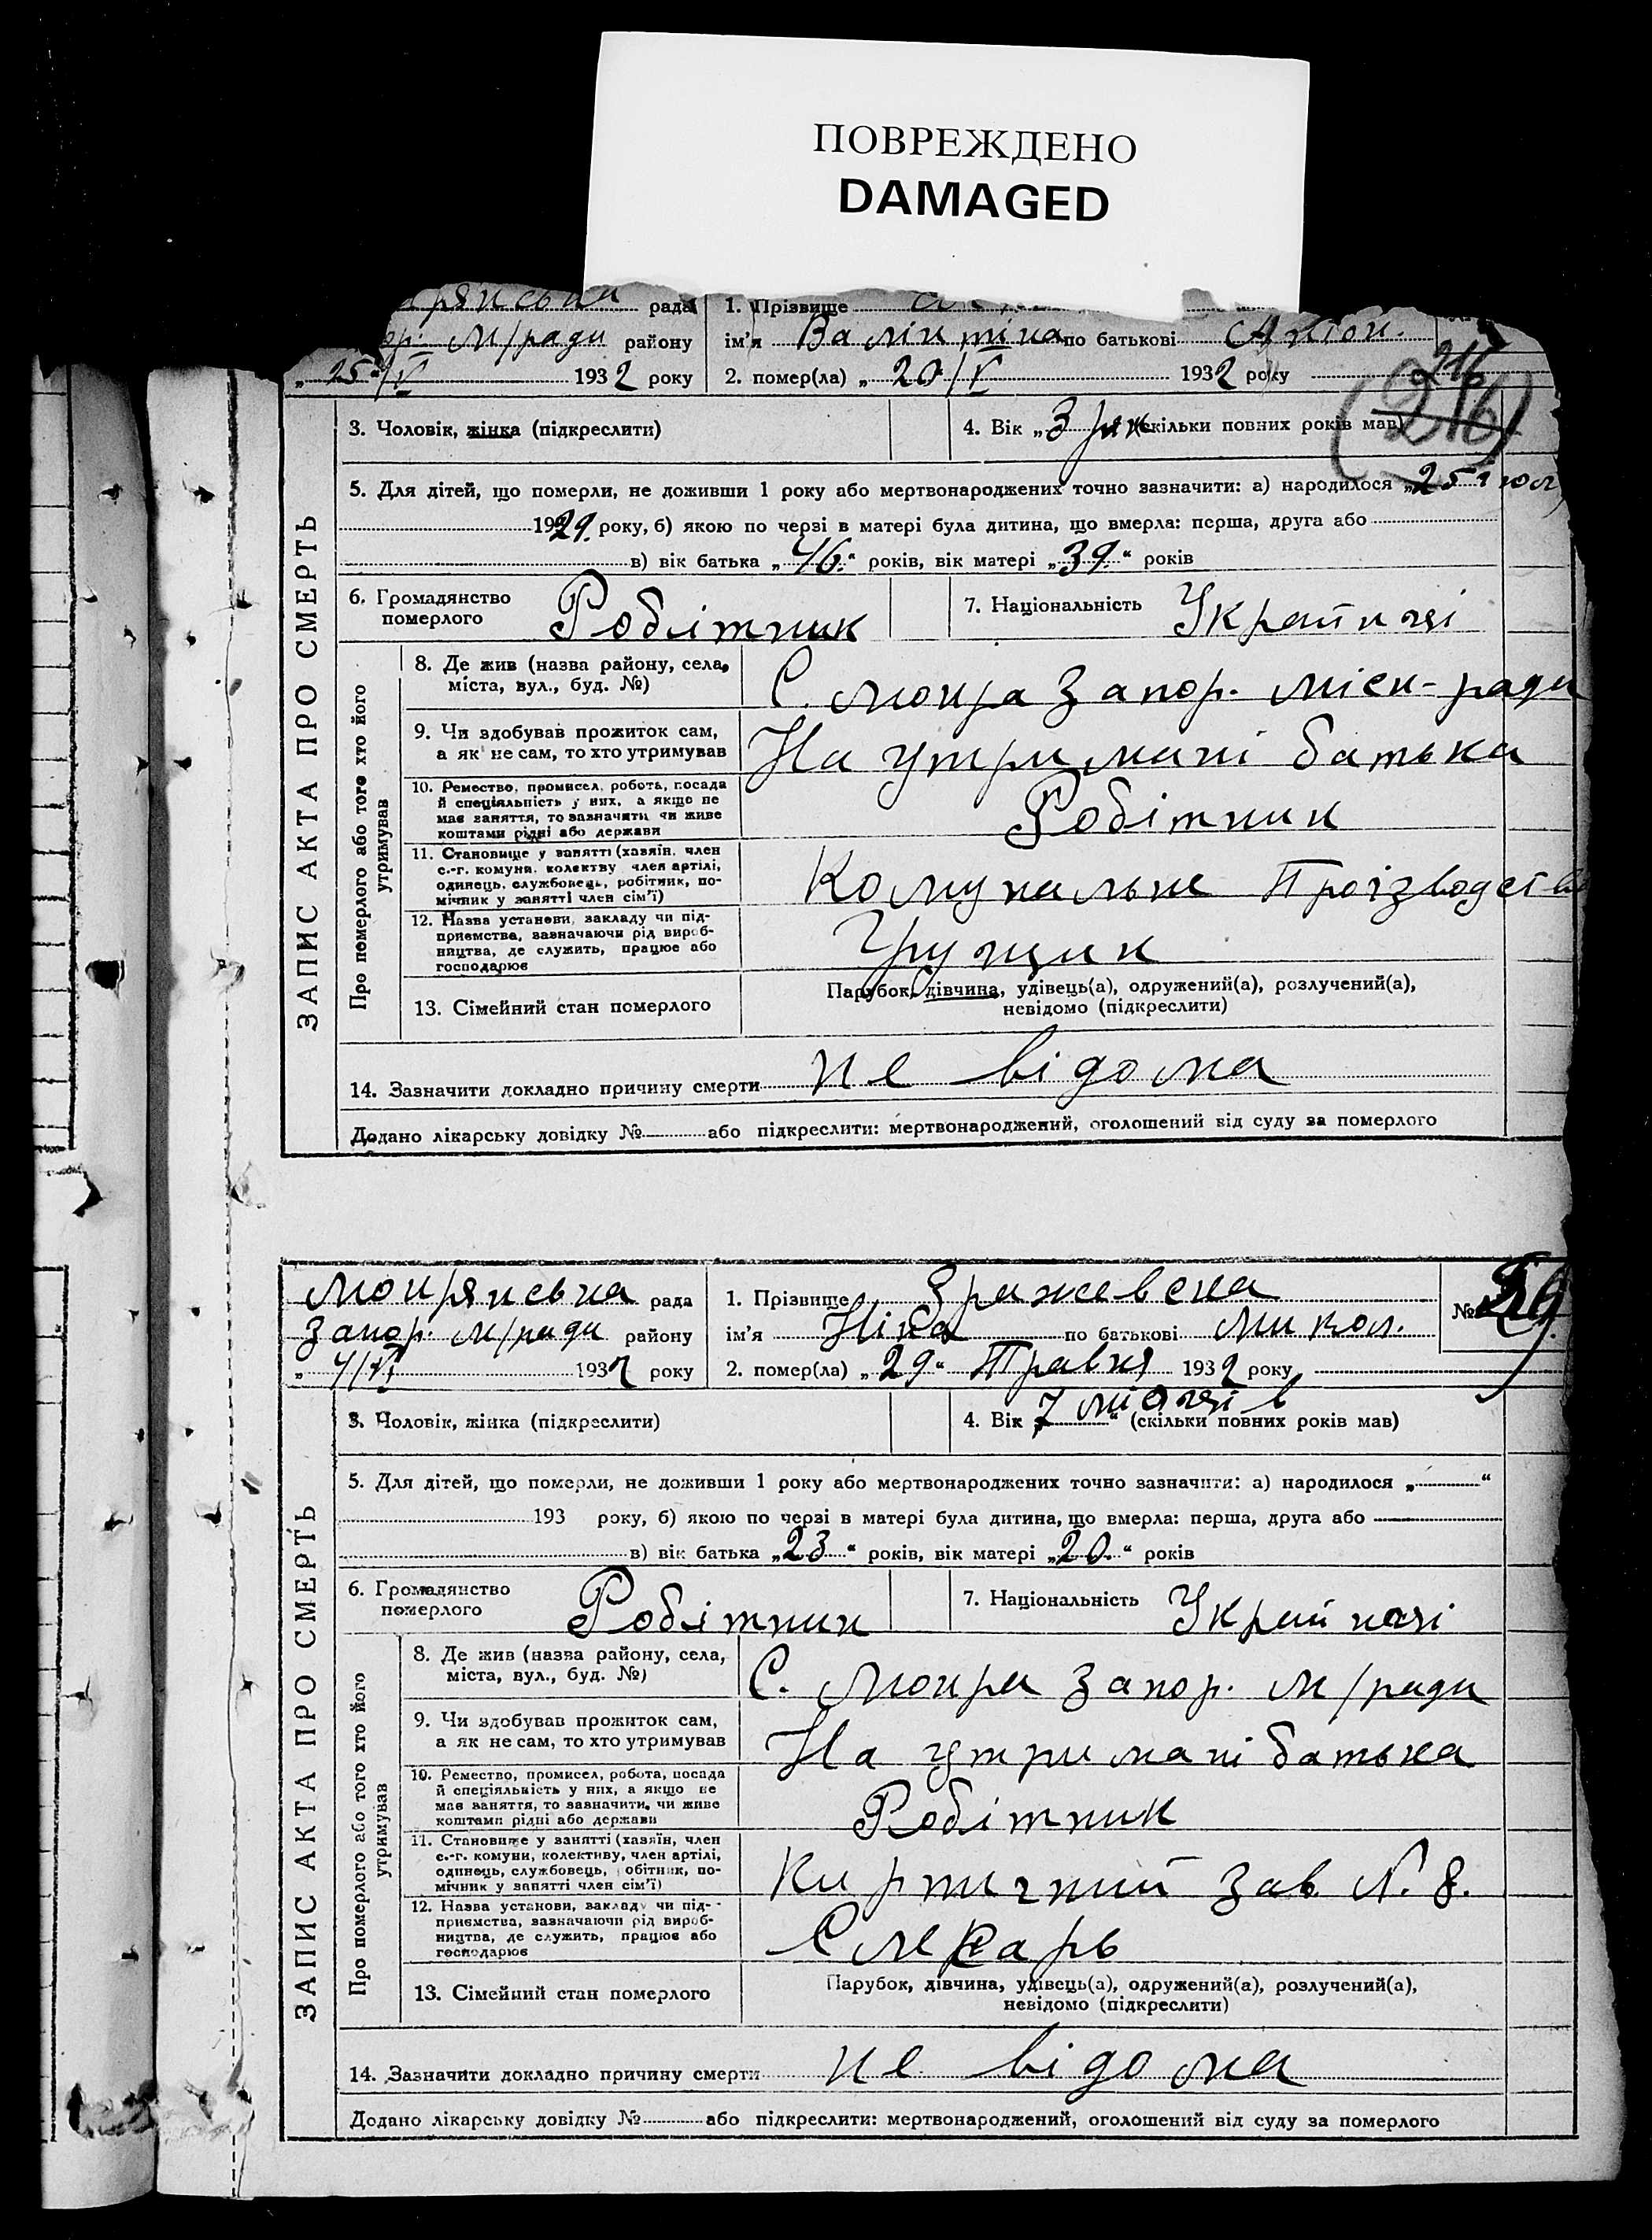 ПОВРЕЖДЕНО
DAMAGED
рада
1. Прізвище
м/ради району
ім'я Валінтіна по батькові Антон.
„25“/V 1932 року
2. помер(ла) „20/V 1932 року
216
(216)
3. Чоловік, жінка (підкреслити)
4. Вік „3 рок (скільки повних років мав)
5. Для дітей, що померли, не доживши 1 року або мертвонароджених точно зазначити: а) народилося „25
1929 року, б) якою по черзі в матері була дитина, що вмерла: перша, друга або
в) вік батька „46“ років, вік матері „39“ років
6. Громадянство померлого Робітник
7. Національність Украйнці
ЗАПИС АКТА ПРО СМЕРТЬ
Про померлого або того хто його утримував
8. Де жив (назва району, села, міста, вул., буд. №)
С. Мокра Запор. міск-ради
9. Чи здобував прожиток сам, а як не сам, то хто утримував
На утримані батька
10. Ремество, промисел, робота, посада й спеціяльність у них, а якщо не має заняття, то зазначити чи живе коштами рідні або держави
Робітник
11. Становище у занятті (хазяїн, член с.-г. комуни, колективу член артілі, одинець, службовець, робітник, помічник у занятті член сім'ї)
Комунальне Проізводство
12. Назва установи, закладу чи підприємства, зазначаючи рід виробництва, де служить, працює або господарює
Грущик
13. Сімейний стан померлого
Парубок, дівчина, удівець(а), одружений(а), розлучений(а), невідомо (підкреслити)
14. Зазначити докладно причину смерти не відома
Додано лікарську довідку № або підкреслити: мертвонароджений, оголошений від суду за померлого
Мокрянська рада
1. Прізвище Зражевска
№
Запор. м/ради району
ім'я Ніна по батькові Микол.
„4/VI 1932 року
2. помер(ла) „29“ Травня 1932 року
3. Чоловік, жінка (підкреслити)
4. Вік „7 місяців“ (скільки повних років мав)
5. Для дітей, що померли, не доживши 1 року або мертвонароджених точно зазначити: а) народилося „ “
193 року, б) якою по черзі в матері була дитина, що вмерла: перша, друга або
в) вік батька „23“ років, вік матері „20“ років
6. Громадянство померлого Робітник
7. Національність Украйнці
ЗАПИС АКТА ПРО СМЕРТЬ
Про померлого або того хто його утримував
8. Де жив (назва району, села, міста, вул., буд. №)
С. Мокра Запор. м/ради
9. Чи здобував прожиток сам, а як не сам, то хто утримував
На утримані батька
10. Ремество, промисел, робота, посада й спеціяльність у них, а якщо не має заняття, то зазначити, чи живе коштами рідні або держави
Робітник
11. Становище у занятті (хазяїн, член с.-г. комуни, колективу, член артілі, одинець, службовець, робітник, помічник у занятті член сім'ї)
Кирпичний зав. N. 8.
12. Назва установи, закладу чи підприємства, зазначаючи рід виробництва, де служить, працює або господарює
13. Сімейний стан померлого
Парубок, дівчина, удівець(а), одружений(а), розлучений(а), невідомо (підкреслити)
14. Зазначити докладно причину смерти не відома
Додано лікарську довідку № або підкреслити: мертвонароджений, оголошений від суду за померлого